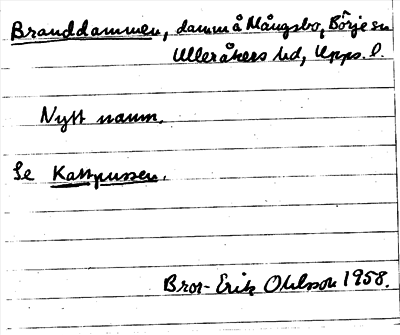 Branddammen, damm å Mångsbo, Börje sn
Ulleråkers hd, Upps. l.
Nytt namn.
Se Kattpussen.
Bror-Erik Ohlsson 1958.